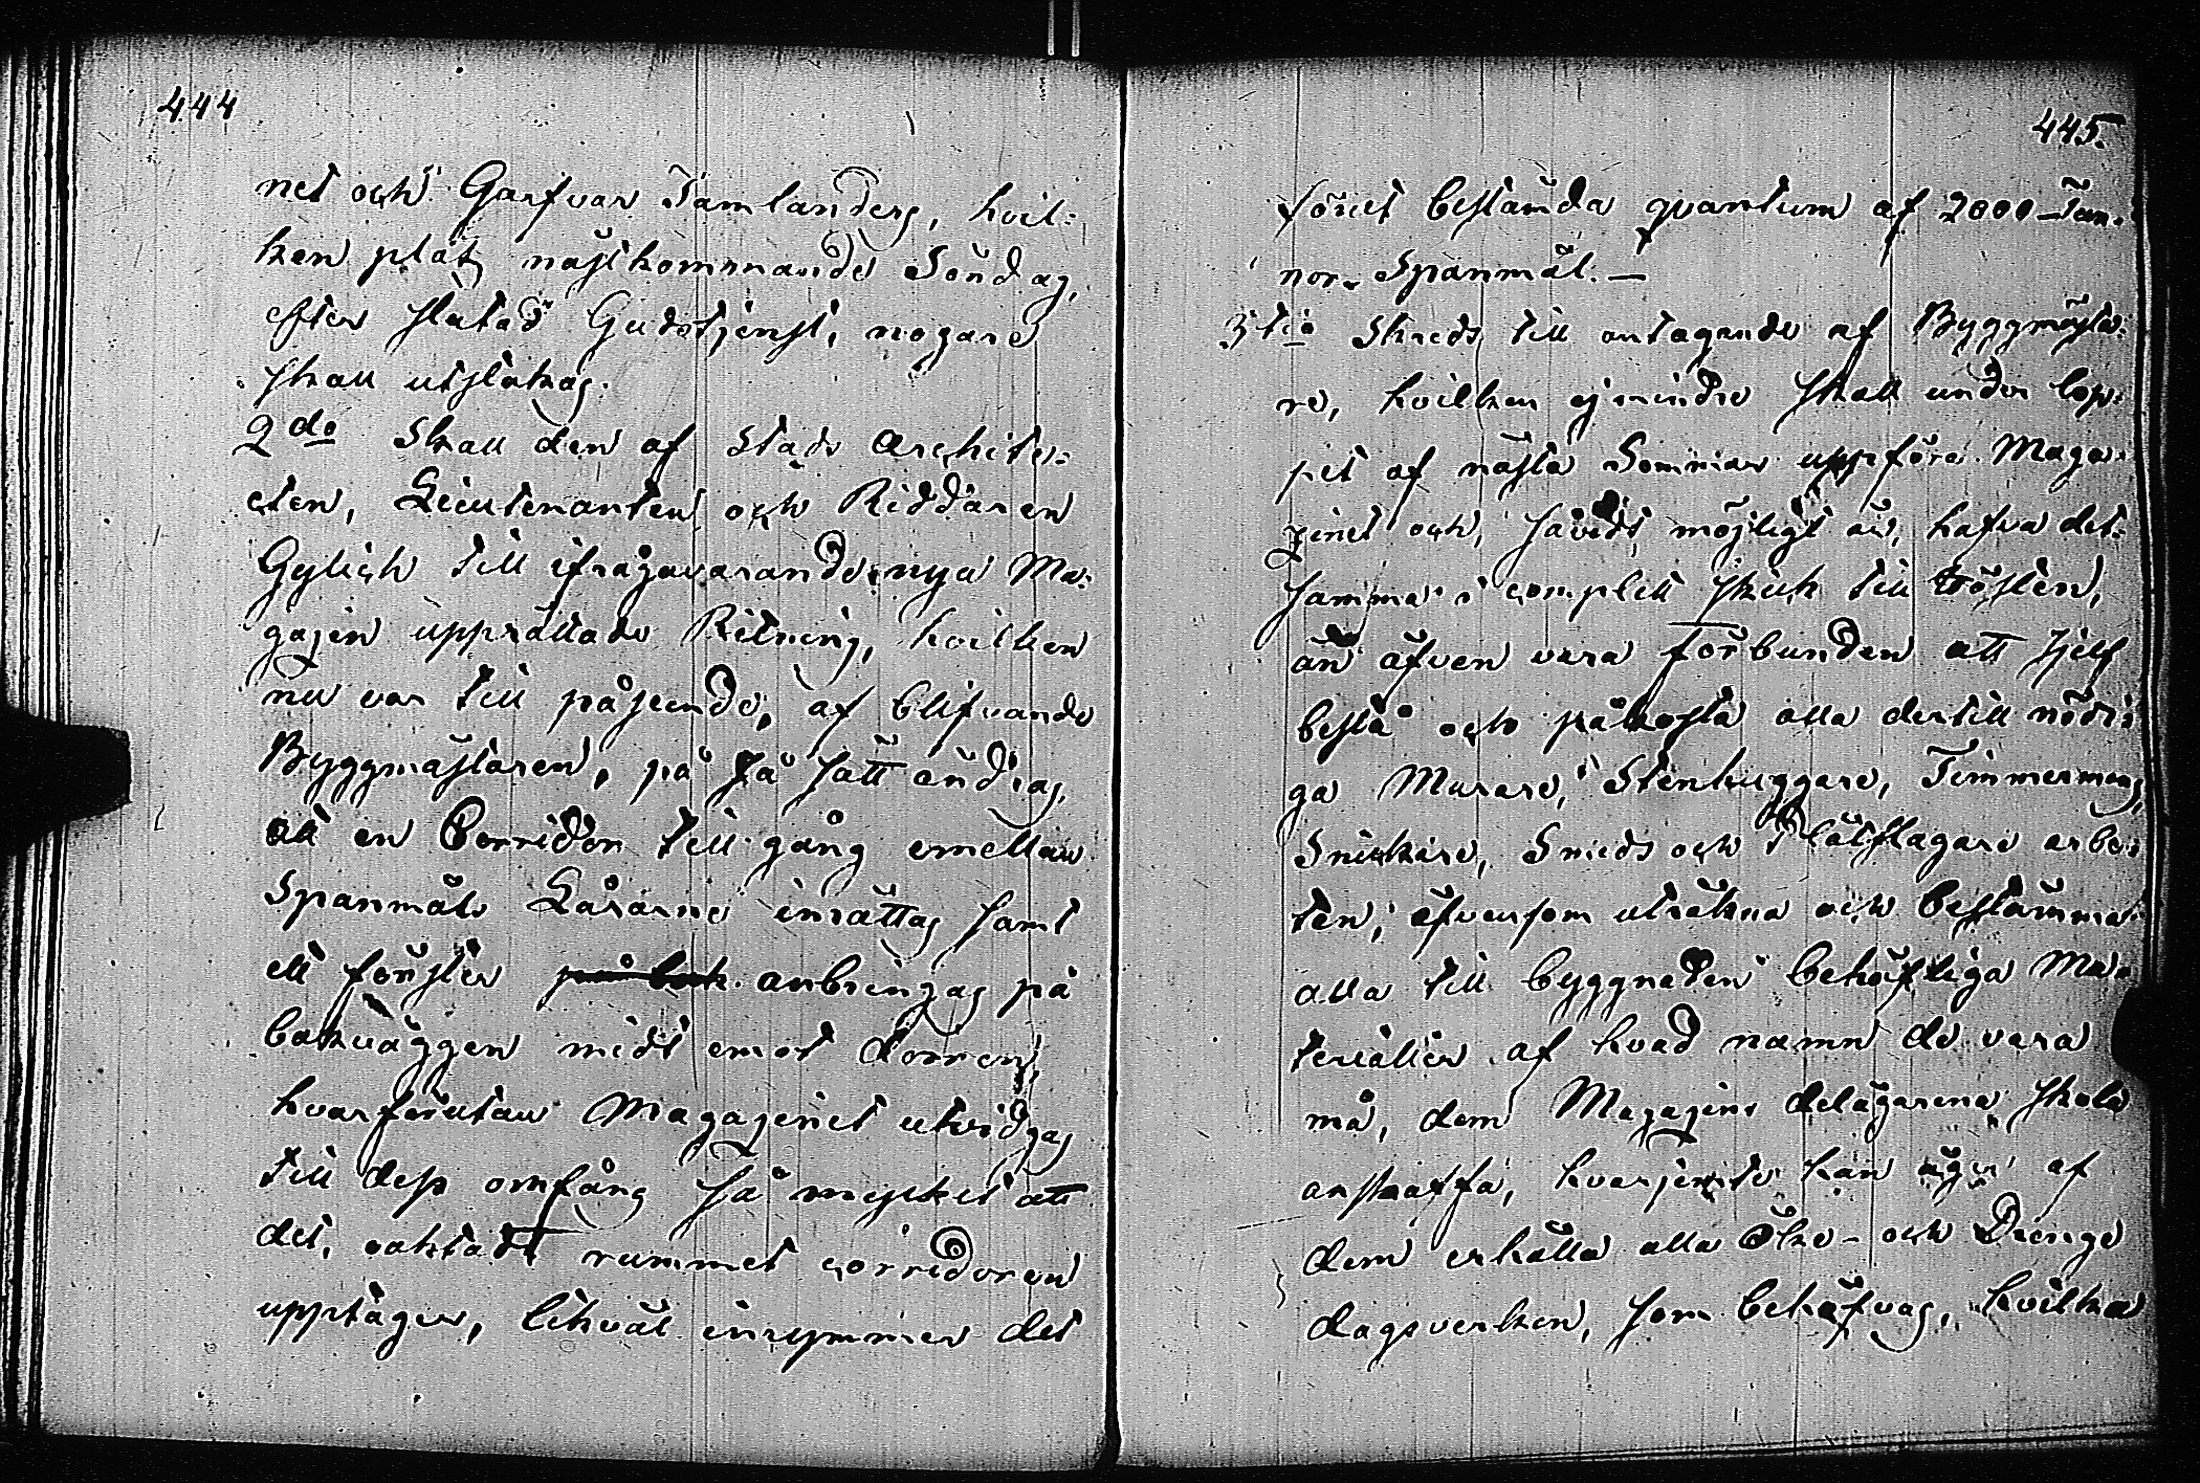 444
net och Garfvar Tamlanders, hvil=
ken plats nästkommande Söndag,
efter slutad Gudstjenst, nogare
skall utstakas.
2do Skall den af Stads Archite=
cten, Lieutenanten och Riddaren
Gylich till ifrågavarande nya Ma=
gazin upprättade Ritning, hvilken
nu var till påseende, af blifvande
Byggmästaren, på så sätt ändras,
att en Corridor till gång emellan
Spanmåls Lårarne inrättas samt
ett fönster på bak anbringas på
bakväggen midt emot dörren,
hvarförutan Magazinet utvidgas
till dess omfång så mycket att
det, oaktadt rummet corridoren
upptager, likväl inrymmer det
445.
förut bestämda qvantum af 2000 Tun=
nor Spanmål. —
3tio Skreds till antagande af Byggmästa=
re, hvilken ej mindre skall under lop=
pet af nästa Sommar uppföra Maga=
zinet och, såvidt möjligt är, hafva det=
samma i complett skick till Hösten,
än äfven vara förbunden att sjelf
bestå och påkosta alla dertill nödi=
ga Murare, Stenhuggare, Timmermans,
Snickare, Smeds och Plåtslagare arbe=
ten; äfvensom uträkna och bestämma
alla till byggnaden behöfliga Ma=
terialier af hvad namn de vara
må, dem Magazins delägarena skola
anskaffa, hvarjemte han äger af
dem erhålla alla Öke- och Drenge
dagsverken, som behöfvas, hvilka